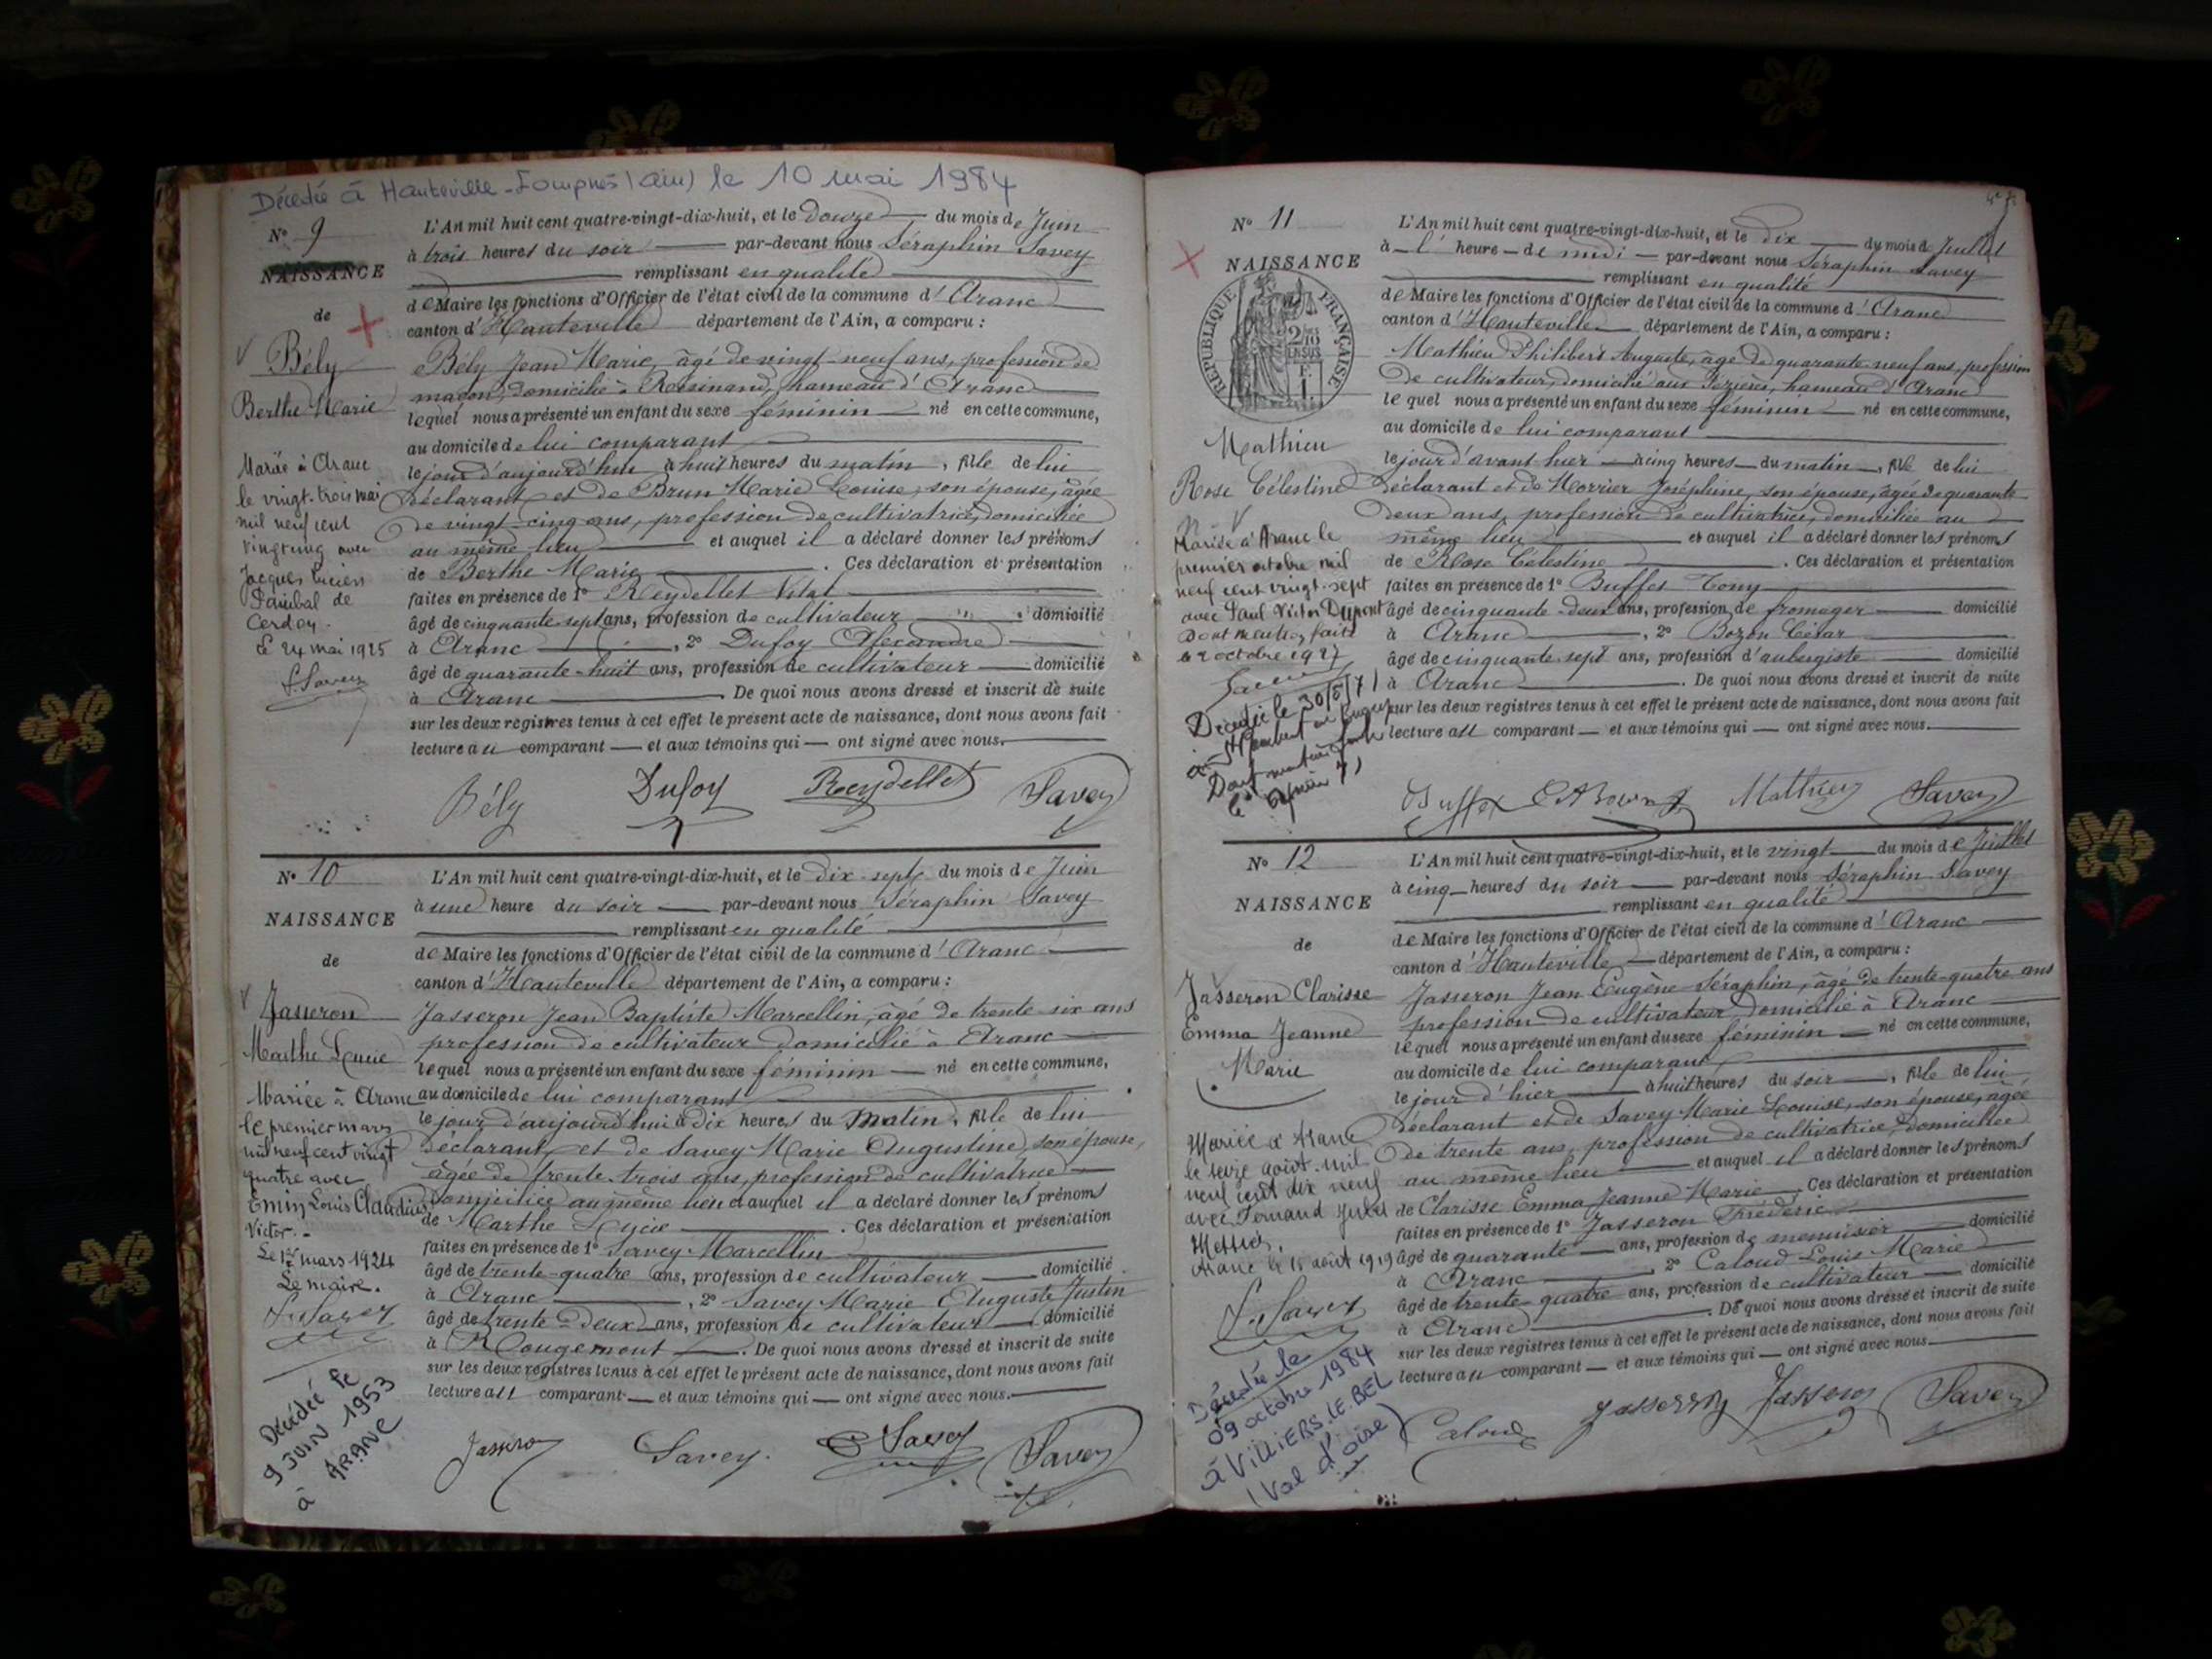 Décédée à Hauteville-Lompnes (Ain) le 10 mai 1984
N° 9
NAISSANCE
de
Bély
Berthe Marie
Mariée à Aranc
le vingt-trois mai
mil neuf cent
vingt cinq avec
Jacques Lucien
de
Cerdon.
Le 24 mai 1925
S. Savey
L'An mil huit cent quatre-vingt-dix-huit, et le douze du mois de Juin
à trois heures du soir par-devant nous Séraphin Savey
remplissant en qualité
de Maire les fonctions d'Officier de l'état civil de la commune d'Aranc
canton d'Hauteville département de l'Ain, a comparu :
Bély Jean Marie, âgé de vingt-neuf ans, profession de
maçon, domicilié à Rossinand, hameau d'Aranc
lequel nous a présenté un enfant du sexe féminin né en cette commune,
au domicile de lui comparant
le jour d'aujourd'hui à huit heures du matin, fille de lui
déclarant et de Brun Marie Louise, son épouse, âgée
de vingt-cinq ans, profession de cultivatrice, domiciliée
au même lieu et auquel il a déclaré donner les prénoms
de Berthe Marie. Ces déclaration et présentation
faites en présence de 1° Reydellet Vital
âgé de cinquante sept ans, profession de cultivateur domicilié
à Aranc, 2° Dufoy Alexandre
âgé de quarante-huit ans, profession de cultivateur domicilié
à Aranc. De quoi nous avons dressé et inscrit de suite
sur les deux registres tenus à cet effet le présent acte de naissance, dont nous avons fait
lecture au comparant et aux témoins qui ont signé avec nous.
Bély Dufoy Reydellet Savey
N° 10
NAISSANCE
de
Jasseron
Marthe Lucie
Mariée à Aranc
le premier mars
mil neuf cent vingt
quatre avec
Emin Louis Claudius
Victor.-
Le 1er mars 1924
Le maire.
S. Savey
Décédée le
9 JUIN 1953
à ARANC
L'An mil huit cent quatre-vingt-dix-huit, et le dix-sept du mois de Juin
à une heure du soir par-devant nous Séraphin Savey
remplissant en qualité
de Maire les fonctions d'Officier de l'état civil de la commune d'Aranc
canton d'Hauteville département de l'Ain, a comparu :
Jasseron Jean Baptiste Marcellin, âgé de trente six ans
profession de cultivateur domicilié à Aranc
lequel nous a présenté un enfant du sexe féminin né en cette commune,
au domicile de lui comparant
le jour d'aujourd'hui à dix heures du matin, fille de lui
déclarant et de Savey Marie Augustine, son épouse,
âgée de trente-trois ans, profession de cultivatrice
domiciliée au même lieu et auquel il a déclaré donner les prénoms
de Marthe Lucie. Ces déclaration et présentation
faites en présence de 1° Servey Marcellin
âgé de trente-quatre ans, profession de cultivateur domicilié
à Aranc, 2° Savey Marie Auguste Justin
âgé de trente-deux ans, profession de cultivateur domicilié
à Rougemont. De quoi nous avons dressé et inscrit de suite
sur les deux registres tenus à cet effet le présent acte de naissance, dont nous avons fait
lecture au comparant et aux témoins qui ont signé avec nous.
Jasseron Savey. Savey Savey
N° 11
NAISSANCE
REPUBLIQUE FRANÇAISE
2/10 EN SUS
Mathieu
Rose Célestine
Mariée à Aranc le
premier octobre mil
neuf cent vingt-sept
avec Paul Victor Dupont
Dont mention faite
le 2 octobre 1927
Savey
Décédée le 30/5/71
à St Rambert en Bugey
Dont mention faite
L'An mil huit cent quatre-vingt-dix-huit, et le dix du mois de Juillet
à l'heure de midi par-devant nous Séraphin Savey
remplissant en qualité
de Maire les fonctions d'Officier de l'état civil de la commune d'Aranc
canton d'Hauteville département de l'Ain, a comparu :
Mathieu Philibert Auguste, âgé de quarante-neuf ans, profession
de cultivateur, domicilié aux Pezières, hameau d'Aranc
lequel nous a présenté un enfant du sexe féminin né en cette commune,
au domicile de lui comparant
le jour d'avant hier à cinq heures du matin, fille de lui
déclarant et de Morrier Joséphine, son épouse, âgée de quarante
deux ans, profession de cultivatrice, domiciliée au
même lieu et auquel il a déclaré donner les prénoms
de Rose Célestine. Ces déclaration et présentation
faites en présence de 1° Buffet Tony
âgé de cinquante-deux ans, profession de fromager domicilié
à Aranc, 2° Bozon César
âgé de cinquante sept ans, profession d'aubergiste domicilié
à Aranc. De quoi nous avons dressé et inscrit de suite
sur les deux registres tenus à cet effet le présent acte de naissance, dont nous avons fait
lecture au comparant et aux témoins qui ont signé avec nous.
Buffet Mathieu Savey
N° 12
NAISSANCE
de
Jasseron Clarisse
Emma Jeanne
Marie
Mariée à Aranc
le seize août mil
neuf cent dix neuf
avec Fernand Jules
Aranc le 18 août 1919
S. Savey
Décédée le
09 octobre 1984
à VILLIERS.LE.BEL
(Val d'oise)
L'An mil huit cent quatre-vingt-dix-huit, et le vingt du mois de Juillet
à cinq heures du soir par-devant nous Séraphin Savey
remplissant en qualité
de Maire les fonctions d'Officier de l'état civil de la commune d'Aranc
canton d'Hauteville département de l'Ain, a comparu :
Jasseron Jean Eugène Séraphin, âgé de trente-quatre ans
profession de cultivateur, domicilié à Aranc
lequel nous a présenté un enfant du sexe féminin né en cette commune,
au domicile de lui comparant
le jour d'hier à huit heures du soir, fille de lui
déclarant et de Savey Marie Louise, son épouse, âgée
de trente ans, profession de cultivatrice, domiciliée
au même lieu et auquel il a déclaré donner les prénoms
de Clarisse Emma Jeanne Marie. Ces déclaration et présentation
faites en présence de 1° Jasseron Frédéric
âgé de quarante ans, profession de menuisier domicilié
à Aranc, 2° Caloud Louis Marie
âgé de trente-quatre ans, profession de cultivateur domicilié
à Aranc. De quoi nous avons dressé et inscrit de suite
sur les deux registres tenus à cet effet le présent acte de naissance, dont nous avons fait
lecture au comparant et aux témoins qui ont signé avec nous.
Caloud Jasseron Jasseron Savey